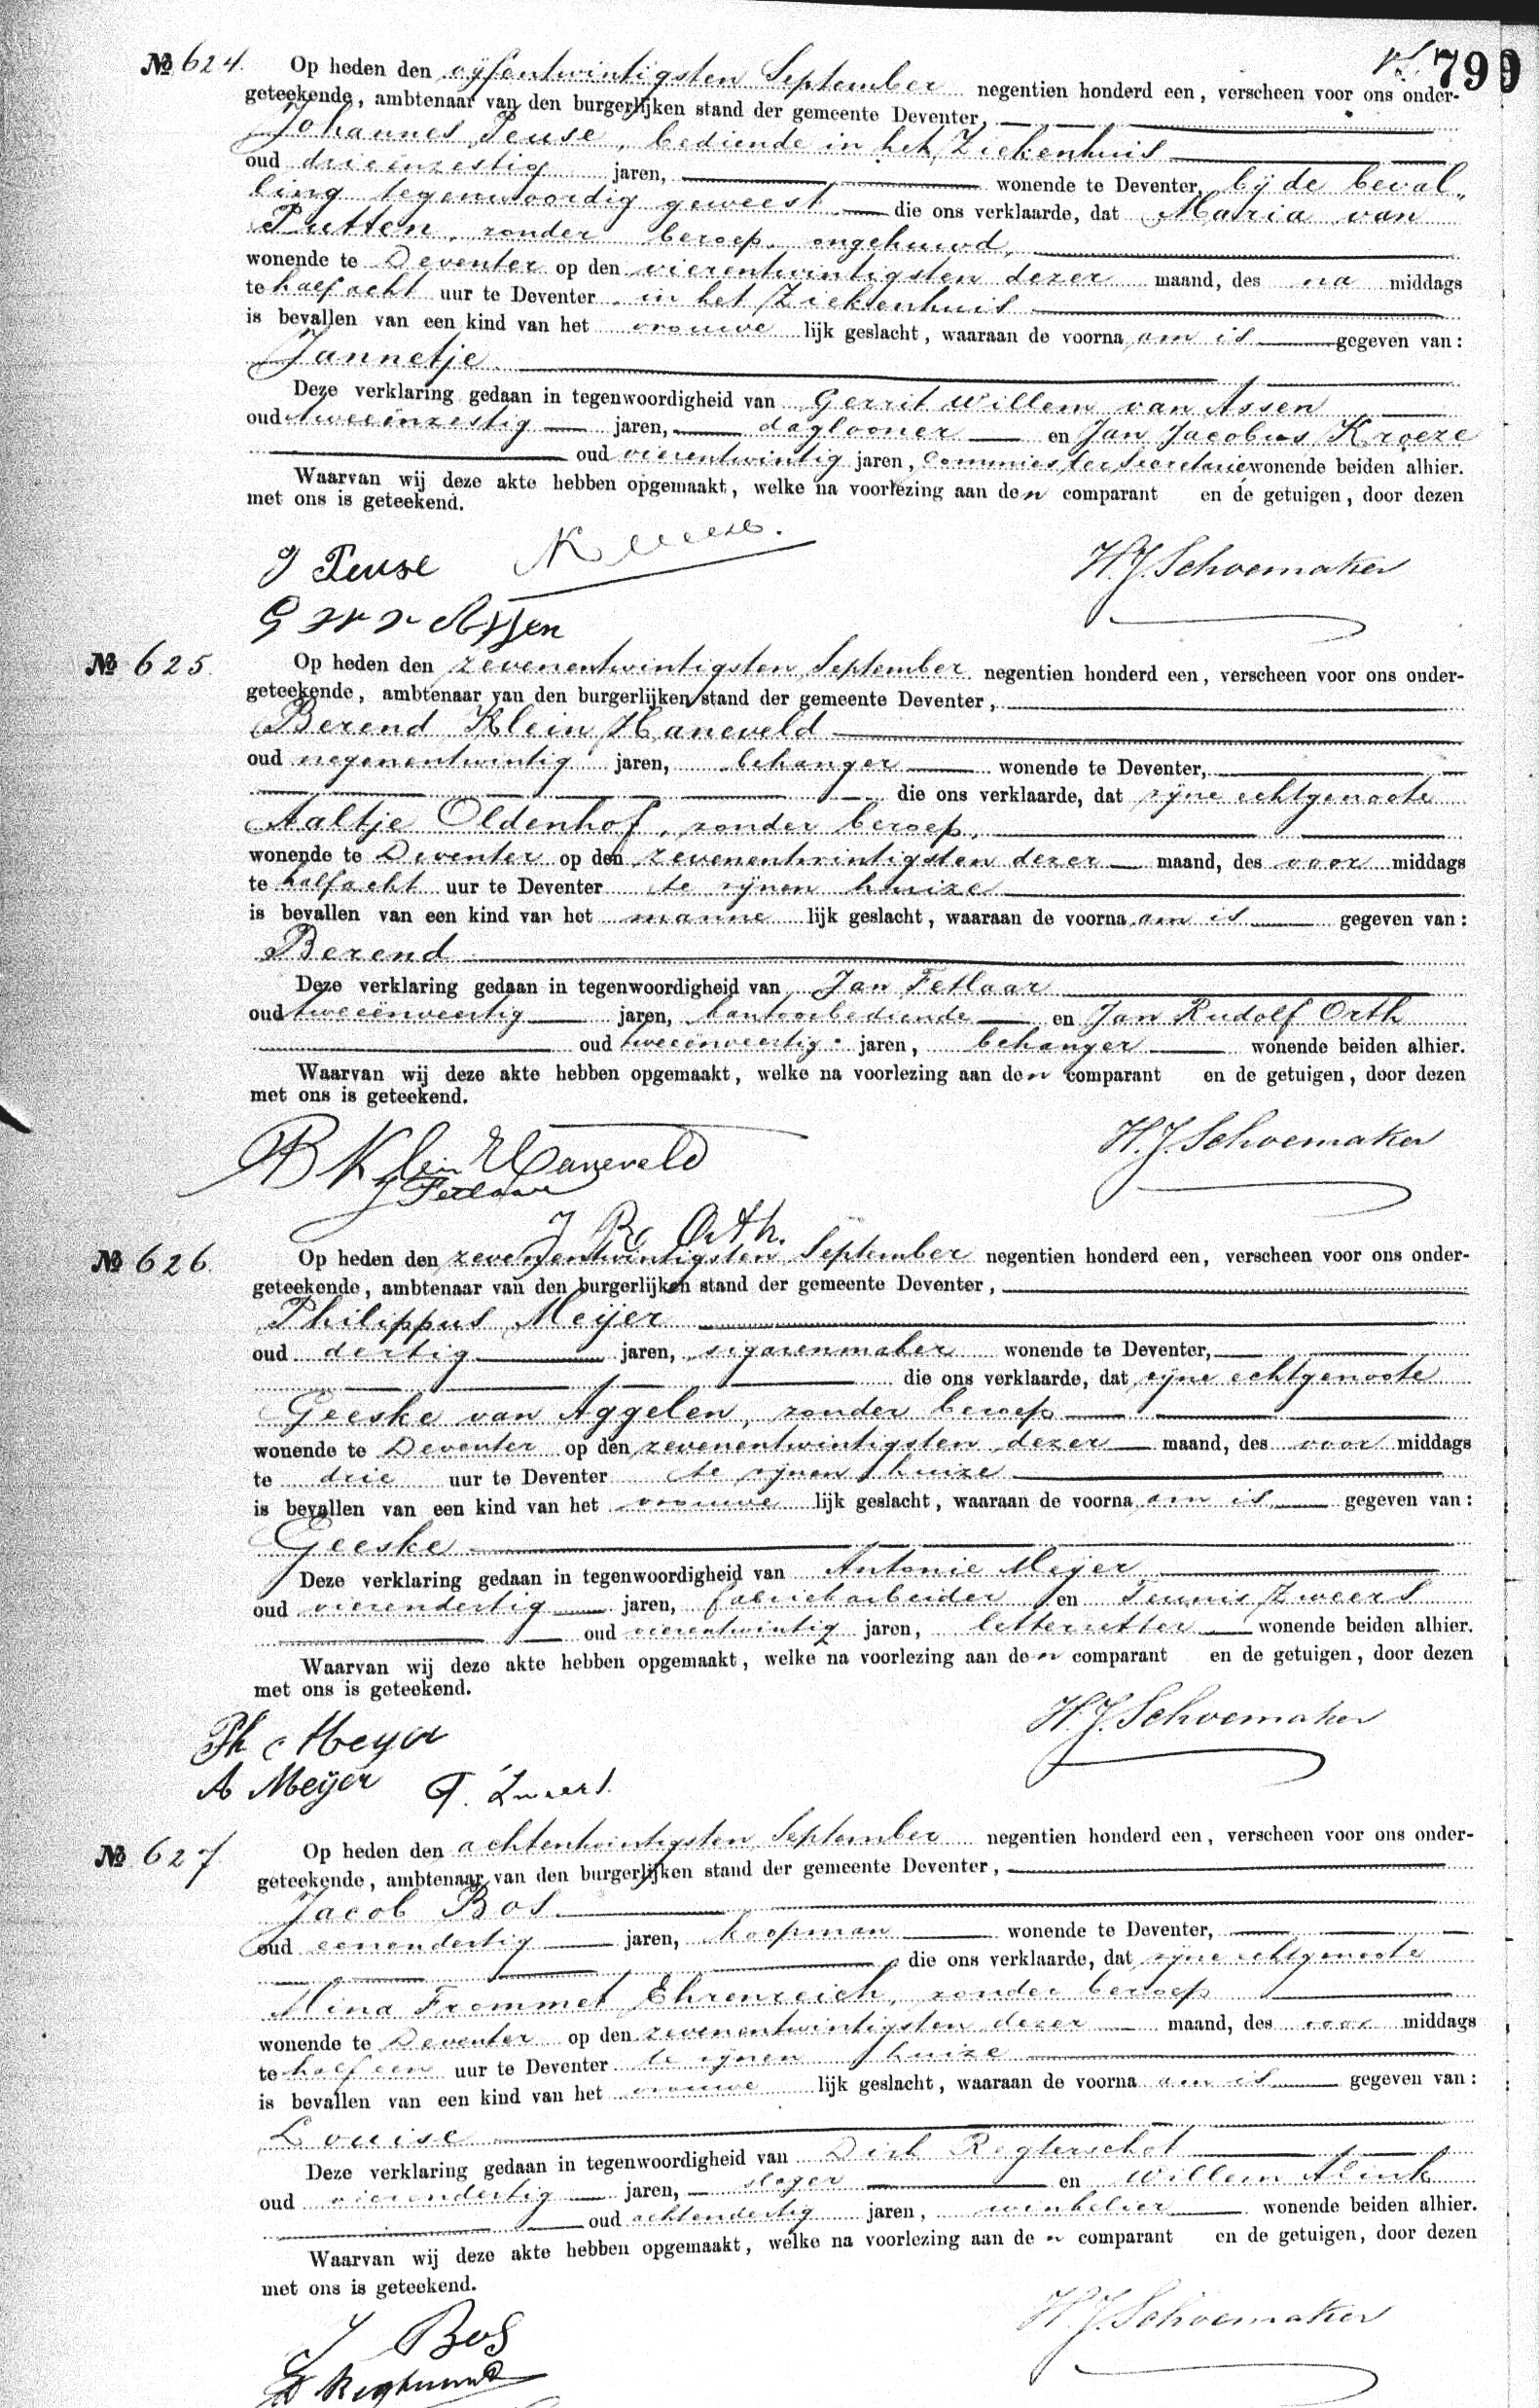 799
№ 624. Op heden den vijfentwintigsten September negentien honderd een, verscheen voor ons onder-
geteekende, ambtenaar van den burgerlijken stand der gemeente Deventer,
Johannes Peuse, bediende in het Ziekenhuis
oud drieënzestig jaren, wonende te Deventer, bij de beval-
ling tegenwoordig geweest die ons verklaarde, dat Maria van
Putten, zonder beroep, ongehuwd,
wonende te Deventer op den vierentwintigsten dezer maand, des na middags
te half acht uur te Deventer in het Ziekenhuis
is bevallen van een kind van het vrouwe lijk geslacht, waaraan de voorna am is gegeven van:
Jannetje.
Deze verklaring gedaan in tegenwoordigheid van Gerrit Willem van Assen
oud tweeënzestig jaren, daglooner en Jan Jacobus Kroeze
oud vierentwintig jaren, commies ter Secretarie wonende beiden alhier.
Waarvan wij deze akte hebben opgemaakt, welke na voorlezing aan den comparant en de getuigen, door dezen
met ons is geteekend.
J Peuse H.J. Schoemaker
G W v Assen
№ 625. Op heden den zevenentwintigsten September negentien honderd een, verscheen voor ons onder-
geteekende, ambtenaar van den burgerlijken stand der gemeente Deventer,
Berend Klein Haneveld
oud negenentwintig jaren, behanger wonende te Deventer,
die ons verklaarde, dat zijne echtgenoote
Aaltje Oldenhof, zonder beroep,
wonende te Deventer op den zevenentwintigsten dezer maand, des voor middags
te half acht uur te Deventer te zijnen huize
is bevallen van een kind van het manne lijk geslacht, waaraan de voorna am is gegeven van:
Berend
Deze verklaring gedaan in tegenwoordigheid van Jan Fetlaar
oud tweeënveertig jaren, kantoorbediende en Jan Rudolf Orth
oud tweeënveertig jaren, behanger wonende beiden alhier.
Waarvan wij deze akte hebben opgemaakt, welke na voorlezing aan den comparant en de getuigen, door dezen
met ons is geteekend.
B Klein Haneveld H.J. Schoemaker
J Fetlaar
J R Orth.
№ 626. Op heden den zevenentwintigsten September negentien honderd een, verscheen voor ons onder-
geteekende, ambtenaar van den burgerlijken stand der gemeente Deventer,
Philippus Meijer
oud dertig jaren, sigarenmaker wonende te Deventer,
die ons verklaarde, dat zijne echtgenoote
Geeske van Aggelen, zonder beroep
wonende te Deventer op den zevenentwintigsten dezer maand, des voor middags
te drie uur te Deventer te zijnen huize
is bevallen van een kind van het vrouwe lijk geslacht, waaraan de voorna am is gegeven van:
Geeske
Deze verklaring gedaan in tegenwoordigheid van Antonie Meijer
oud vierendertig jaren, fabriekarbeider en Teunis Zweers
oud vierentwintig jaren, letterzetter wonende beiden alhier.
Waarvan wij deze akte hebben opgemaakt, welke na voorlezing aan den comparant en de getuigen, door dezen
met ons is geteekend.
Ph Meyer H.J. Schoemaker
A Meijer T. Zweers
№ 627 Op heden den achtentwintigsten September negentien honderd een, verscheen voor ons onder-
geteekende, ambtenaar van den burgerlijken stand der gemeente Deventer,
Jacob Bos
oud eenendertig jaren, koopman wonende te Deventer,
die ons verklaarde, dat zijne echtgenoote
Mina Frommet Ehrenreich, zonder beroep
wonende te Deventer op den zevenentwintigsten dezer maand, des voor middags
te half een uur te Deventer te zijnen huize
is bevallen van een kind van het vrouwe lijk geslacht, waaraan de voorna am is gegeven van:
Louise
Deze verklaring gedaan in tegenwoordigheid van Dirk Regterschot
oud vierendertig jaren, slager en Willem Alink
oud achtendertig jaren, winkelier wonende beiden alhier.
Waarvan wij deze akte hebben opgemaakt, welke na voorlezing aan den comparant en de getuigen, door dezen
met ons is geteekend.
J Bos H.J. Schoemaker